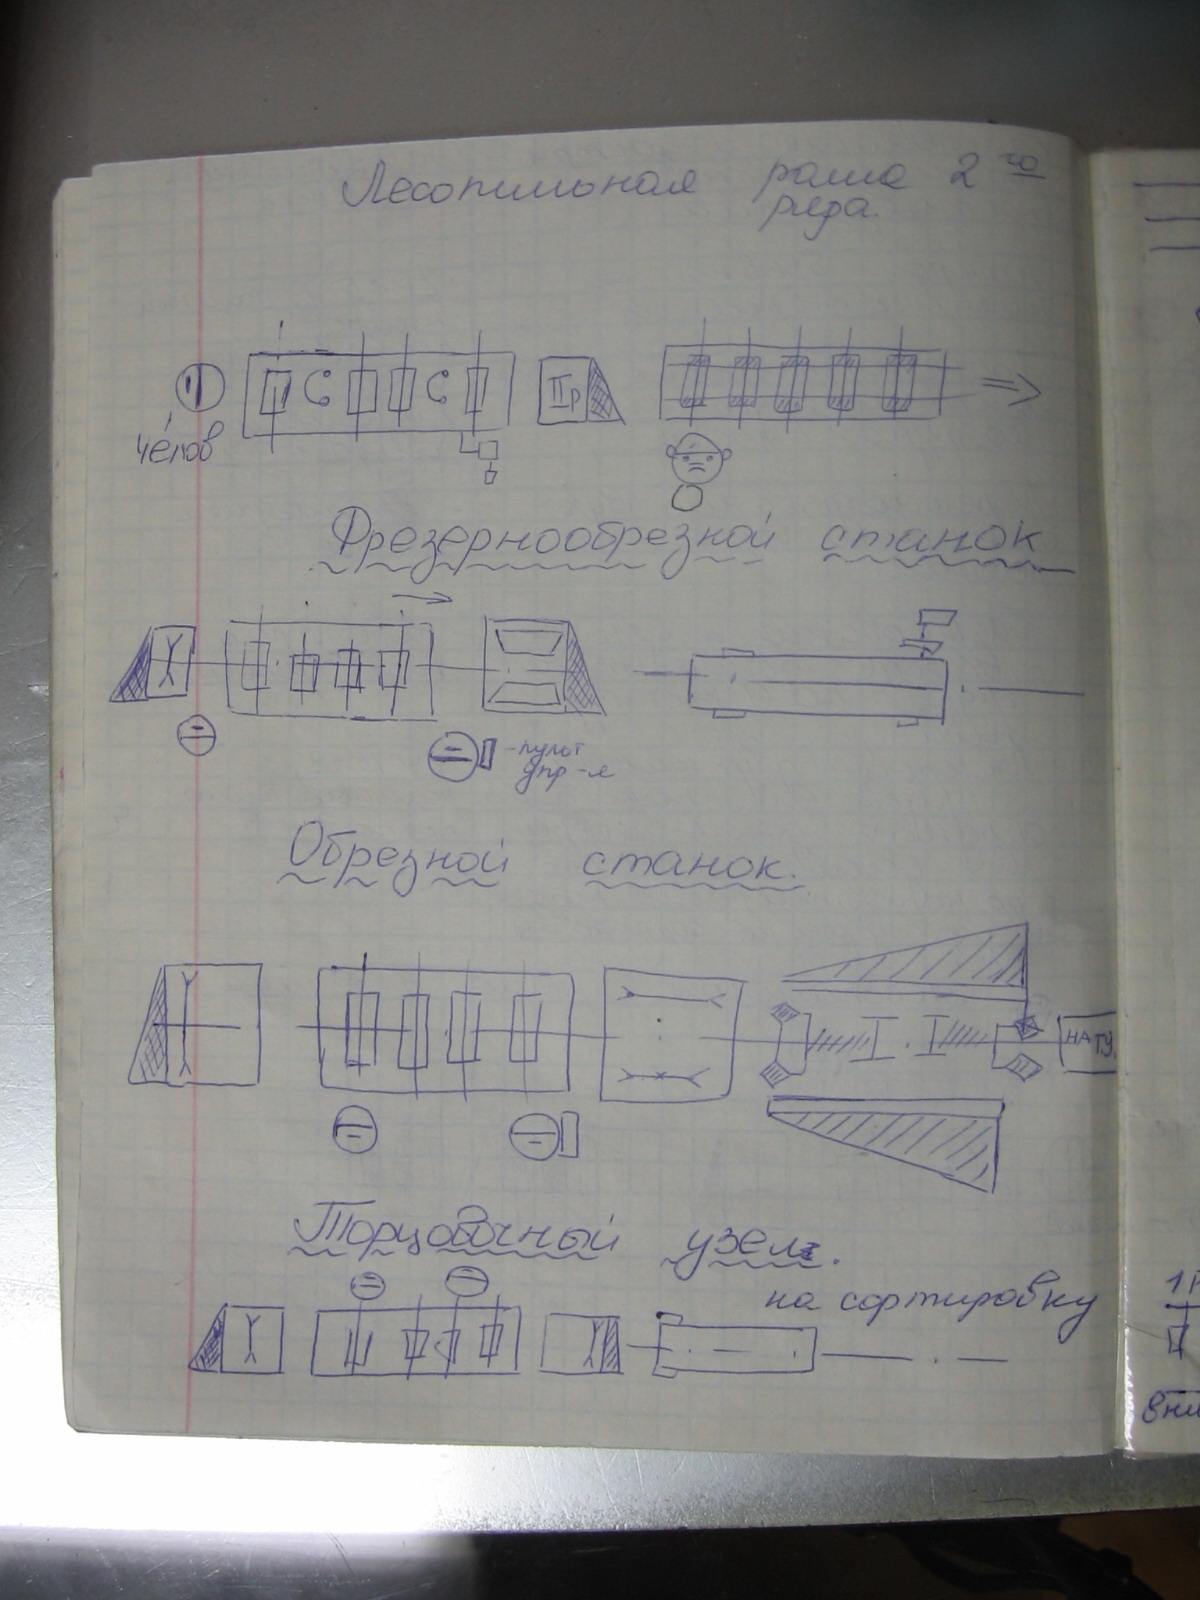 Лесопильная рама 2го
ряда.
IIр
челов
Фрезернообрезной станок
- пульт
упр-я
Обрезной станок.
НА ТУ
Торцовочный узел.
на сортировку